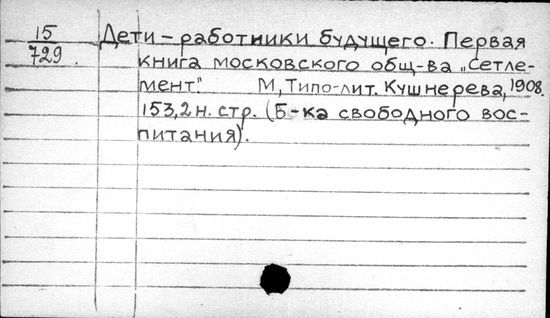 15
729
Дети – работники будущего. Первая
книга московского общ-ва „Сетле-
мент." М, Типо-лит. Кушнерева, 1908.
153,2 н. стр. (Б-ка свободного вос-
питания).